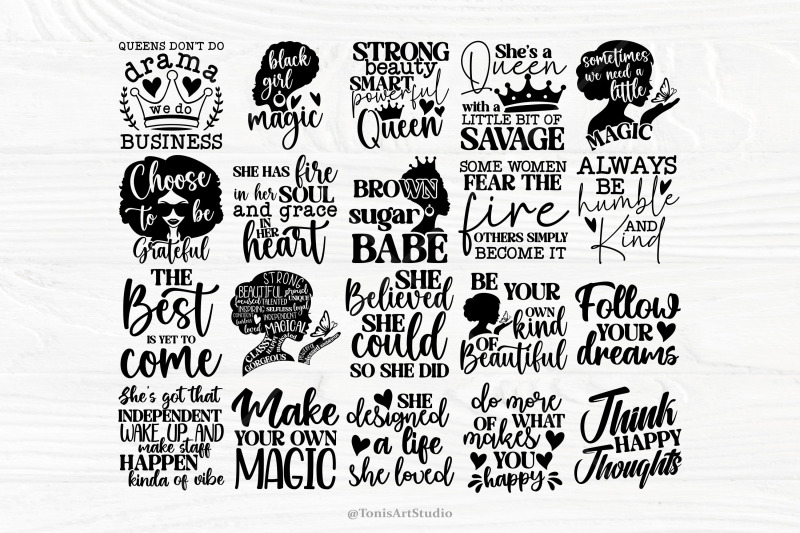 QUEENS DON'T DO
drama
we do
BUSINESS
black
girl
magic
STRONG
beauty
SMART
powerful
Queen
She's a
Queen
with a
LITTLE BIT OF
SAVAGE
sometimes
we need a
little
MAGIC
Choose
to be
Grateful
SHE HAS fire
in her SOUL
and grace
IN HER
heart
BROWN
sugar
BABE
SOME WOMEN
FEAR THE
fire
OTHERS SIMPLY
BECOME IT
ALWAYS
BE
humble
AND
Kind
THE
Best
IS YET TO
come
STRONG
BEAUTIFUL proud
focused TALENTED UNIQUE
INSPIRING SELFLESS loyal
INDEPENDENT
loved MAGICAL
CLASSY
GORGEOUS
SHE
Believed
SHE
could
SO SHE DID
BE YOUR
OWN
kind
OF
Beautiful
Follow
YOUR
dreams
She's got that
INDEPENDENT
WAKE UP AND
make staff
HAPPEN
kinda of vibe
Make
YOUR OWN
MAGIC
SHE
designed
a life
she loved
do more
OF WHAT
makes
YOU
happy
Think
HAPPY
Thoughts
@TonisArtStudio